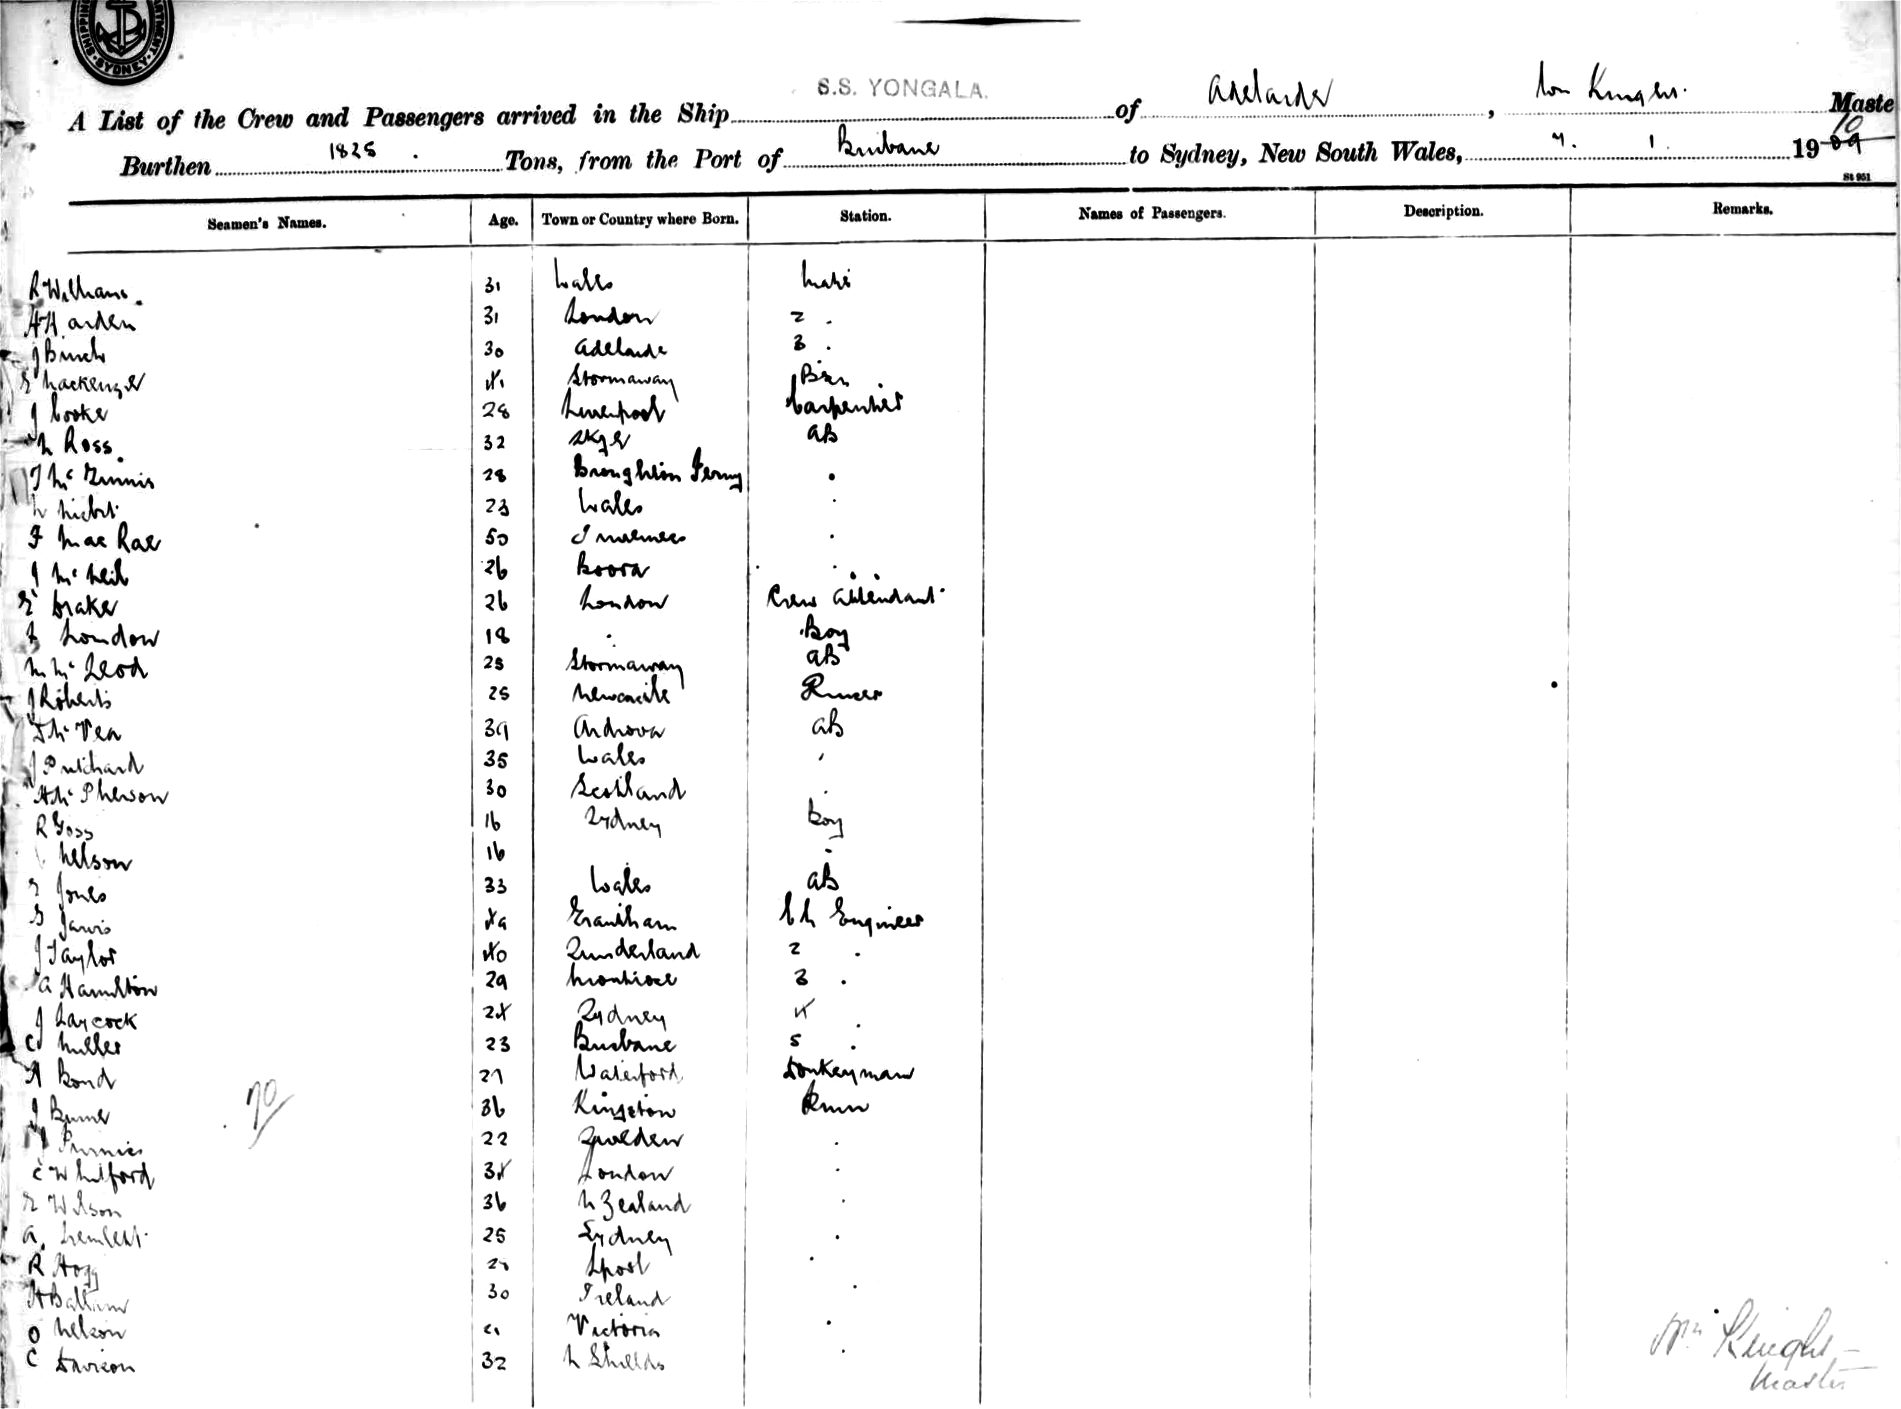 SHIPPING DEPARTMENT SYDNEY
S.S. YONGALA.
A List of the Crew and Passengers arrived in the Ship S.S. YONGALA. of Adelaide, Wm Knight Maste
Burthen 1825 Tons, from the Port of Brisbane to Sydney, New South Wales, 7. 1. 1910
St 951
Seamen's Names. Age. Town or Country where Born. Station. Names of Passengers. Description. Remarks.
R Williams 31 Wales Mate
H Harden 31 London 2 .
J Birch 30 Adelaide 3 .
E Mackenzie 41 Stornaway Bsn
J Cooke 28 Liverpool Carpenter
M Ross 32 Skye AB
J McGinnis 28 Broughton Ferry .
Nisbet 23 Wales .
F MacRae 50 Inverness .
J McNeil 26 Barra .
E Draker 26 London Crew Attendant
F London 18 . Boy
M McLeod 25 Stornaway AB
J Roberts 25 Newcastle
D McVea 39 AB
J Pritchard 35 Wales .
H McPherson 30 Scotland .
R Goss 16 Sydney Boy
Nelson 16 .
E Jones 33 Wales AB
G Jarvis 49 Grantham Ch Engineer
J Taylor 40 Sunderland 2 .
A Hamilton 29 Montrose 3 .
J Laycock 24 Sydney 4 .
C Miller 23 Brisbane 5 .
A Bond 27 Waterford Donkeyman
J Byrne 36 Kingston
22 Sweden .
C Whitford 34 London .
E Wilson 36 N Zealand .
A. 25 Sydney .
R Hogg Lpool .
H Ballam 30 Ireland .
O Nelson 21 Victoria .
C Davison 32 N Shields .
70
Wm Knight
Master